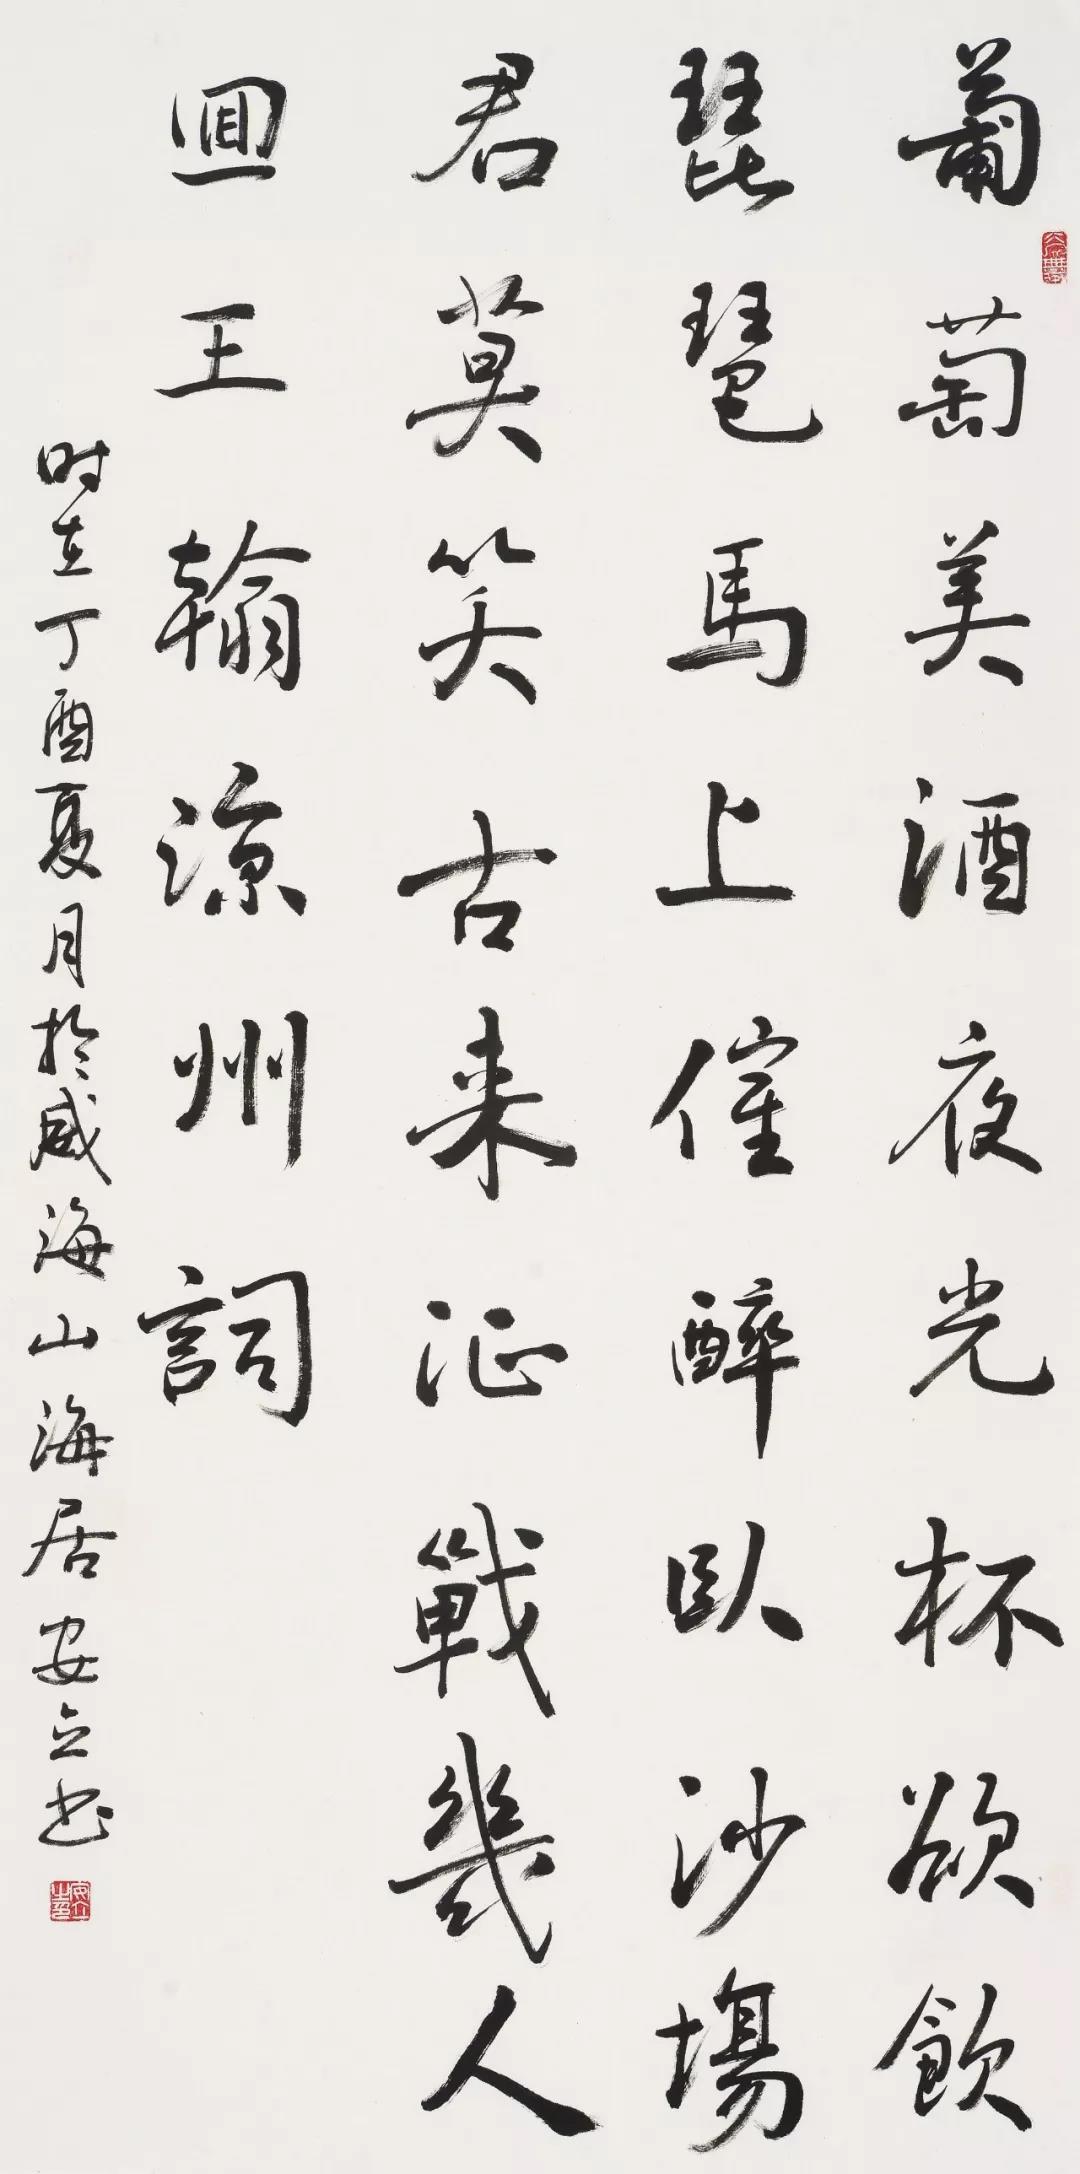 葡萄美酒夜光杯欲飲
琵琶馬上催醉臥沙場
君莫笑古来征戰幾人
回王翰涼州詞
时在丁酉夏月於威海山海居安立书